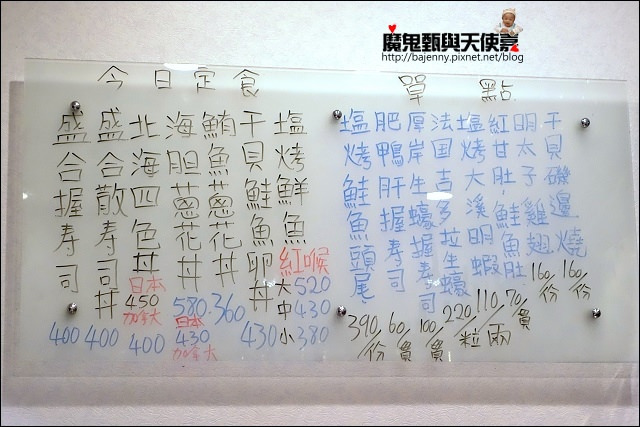 魔鬼甄與天使嘉
http://bajenny.pixnet.net/blog
今日定食
盛合握寿司
400
盛合散寿司丼
400
北海四色丼
日本
450
加拿大
400
海胆蔥花丼
580
日本
430
加拿大
鮪魚蔥花丼
360
干貝鮭魚卵丼
430
塩烤鮮魚
紅喉
大520
中430
小380
單點
塩烤鮭魚頭尾
390/份
肥鴨肝握寿司
60/貫
厚岸生蠔握寿司
100/貫
法国吉多拉生蠔
220/粒
塩烤大溪明蝦
110/兩
紅甘肚鮭魚肚
70/貫
明太子雞翅
160/份
干貝磯邊燒
160/份